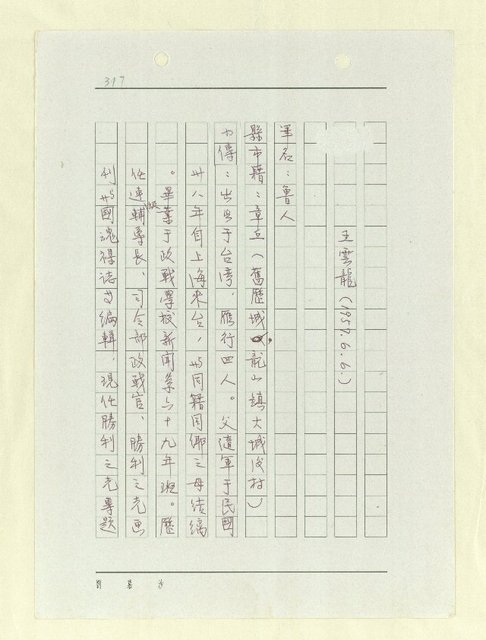 317
王雲龍(1957.6.6.)
筆名：魯人
縣市籍：章丘(舊歷城，龍山鎮大城後村)
小傳：出生于台灣，雁行四人。父隨軍于民國
卅八年自上海來台，與同籍同鄉之母結縭
。畢業于政戰學校新聞系六十九年班。歷
任連輔導長、司令部政戰官、勝利之光畫
刊與國魂雜誌文編輯，現任勝利之光專題